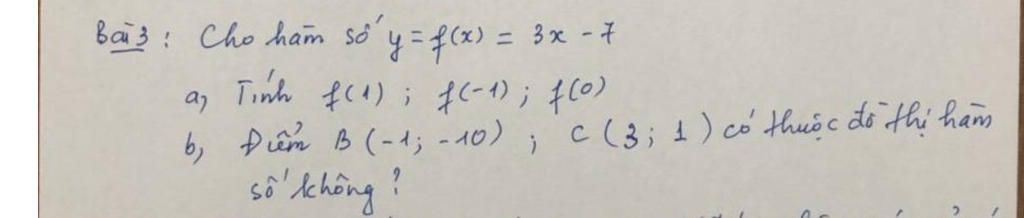 Bài 3 : Cho hàm số y = f(x) = 3x - 7
a, Tính f(1) ; f(-1) ; f(0)
b, Điểm B (-1; -10) ; C (3; 1) có thuộc đồ thị hàm
số không ?